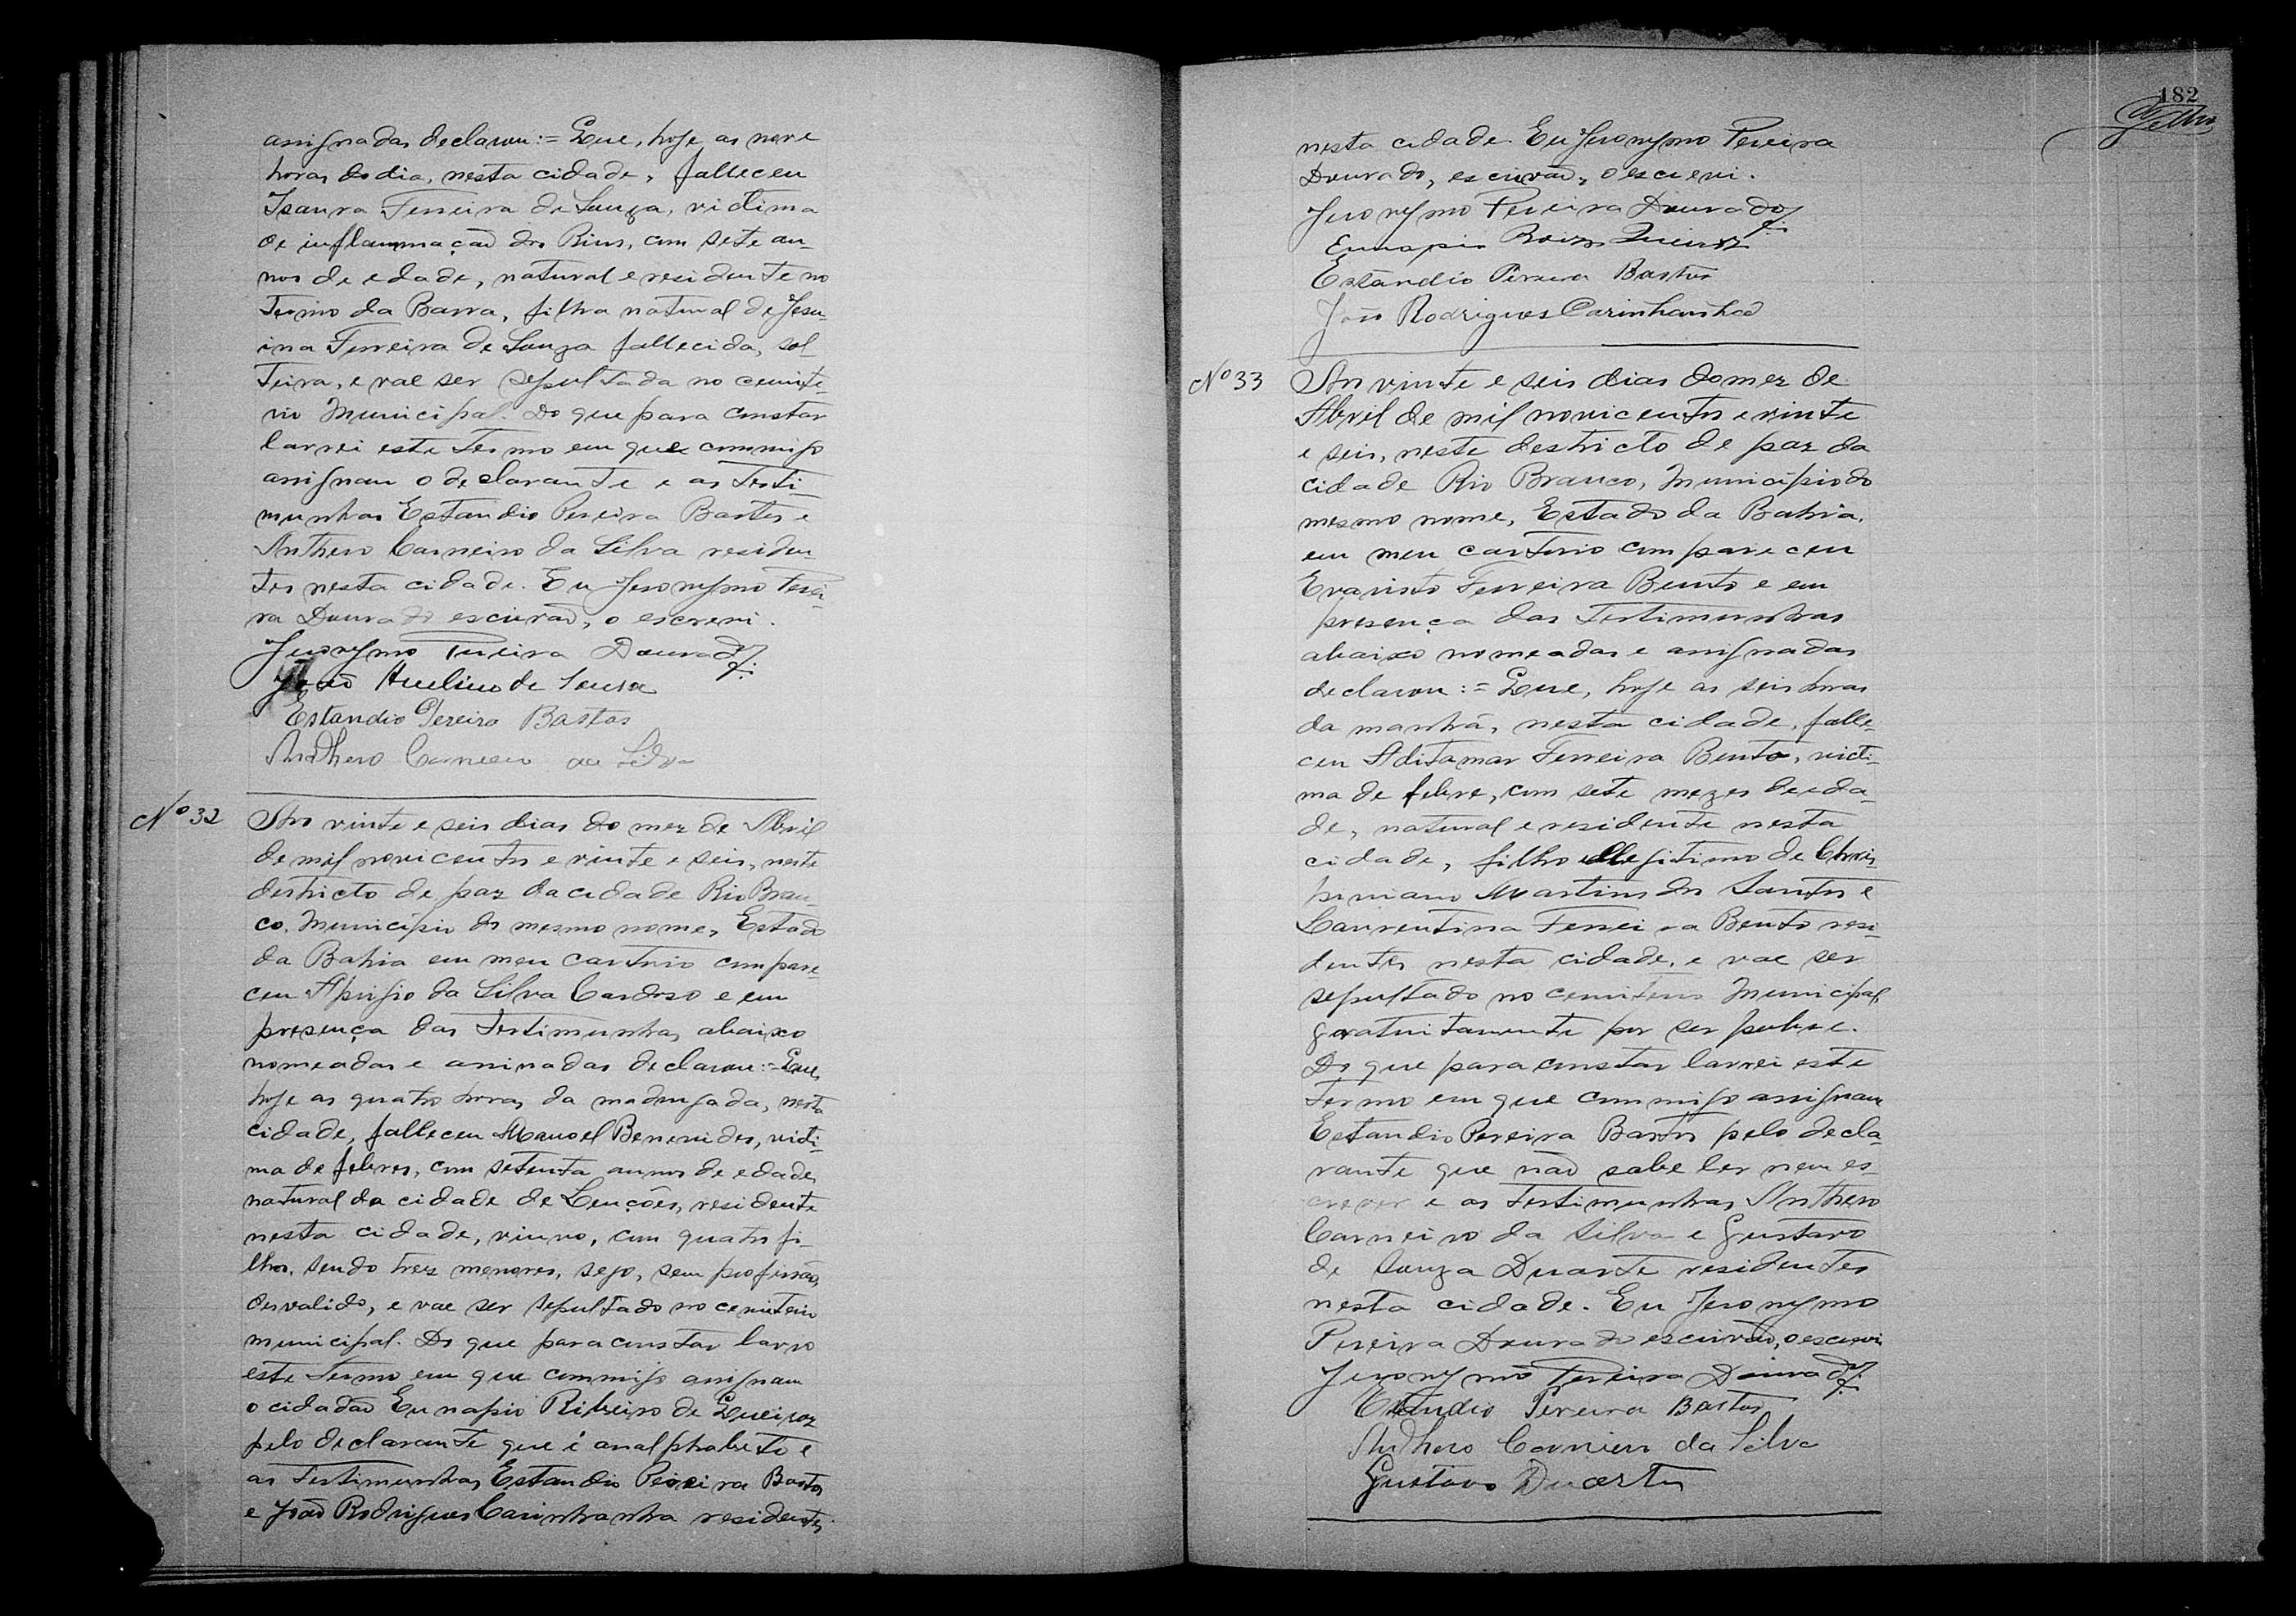 assignadas declarou:= Que, hoje as nove
horas do dia, nesta cidade, falleceu
Isaura Ferreira de Souza, victima
de inflammação dos Rins, com sete an-
nos de edade, natural e residente no
Termo da Barra, filha natural de Jesu-
ina Ferreira de Souza fallecida, sol-
teira, e vae ser sepultada no cemite-
rio Municipal. Do que para constar
lavrei este termo em que commigo
assignam o declarante e as testi-
munhas Estandio Pereira Bastos e
Anthero Carneiro da Silva residen-
tes nesta cidade. Eu Jeronymo Perei-
ra Dourado escrivão, o escrevi.
Jeronymo Pereira Dourado
João Avelino de Sousa
Estandio Pereira Bastos
Anthero Carneiro da Silva
Nº 32
Aos vinte e seis dias do mez de Abril
de mil novicentos e vinte e seis, neste
destricto de paz da cidade Rio Bran-
co, Municipio do mesmo nome, Estado
da Bahia em meu cartorio compare-
ceu Aprigio da Silva Cardoso e em
presença das testimunhas abaixo
nomeadas e assinadas declarou:= Que,
hoje as quatro horas da madrugada, nesta
cidade, falleceu Manoel Benevides, victi-
ma de febres, com setenta annos de edade,
natural da cidade de Lençóes, residente
nesta cidade, viuvo, com quatro fi-
lhos, sendo trez menores, sego, sem profissão,
desvalido, e vae ser sepultado no cemiterio
municipal. Do que para constar lavro
este termo em que commigo assignam
o cidadão Eunapio Ribeiro de Queiroz
pelo declarante que é analphabeto e
as testimunhas Estandio Pereira Bastos
e João Rodrigues Carinhanha residentes
182
nesta cidade. Eu Jeronymo Pereira
Dourado, escrivão, o escrevi.
Jeronymo Pereira Dourado
Eunapio Queiroz
Estandio Pereira Bastos
João Rodrigues Carinhanha
Nº 33
Aos vinte e seis dias do mez de
Abril de mil novicentos e vinte
e seis, neste destricto de paz da
cidade Rio Branco, Municipio do
mesmo nome, Estado da Bahia,
em meu cartorio compareceu
Evaristo Ferreira Bento e em
presença das testimunhas
abaixo nomeadas e assignadas
declarou:= Que, hoje as seis horas
da manhã, nesta cidade, falle-
ceu Aditamar Ferreira Bento, victi-
ma de febre, com sete mezes de eda-
de, natural e residente nesta
cidade, filho illegitimo de Chris
piniano Martins dos Santos e
Laurentina Ferreira Bento resi-
dentes nesta cidade, e vae ser
sepultado no cemiterio Municipal,
gratuitamente por ser pobre.
Do que para constar lavrei este
termo em que commigo assignam
Estandio Pereira Bastos pelo decla-
rante que não sabe ler nem es-
crever e as testimunhas Anthero
Carneiro da Silva e Gustavo
de Souza Duarte residentes
nesta cidade. Eu Jeronymo
Pereira Dourado escrivão, o escrevi
Jeronymo Pereira Dourado
Estandio Pereira Bastos
Anthero Carneiro da Silva
Gustavo Duarte